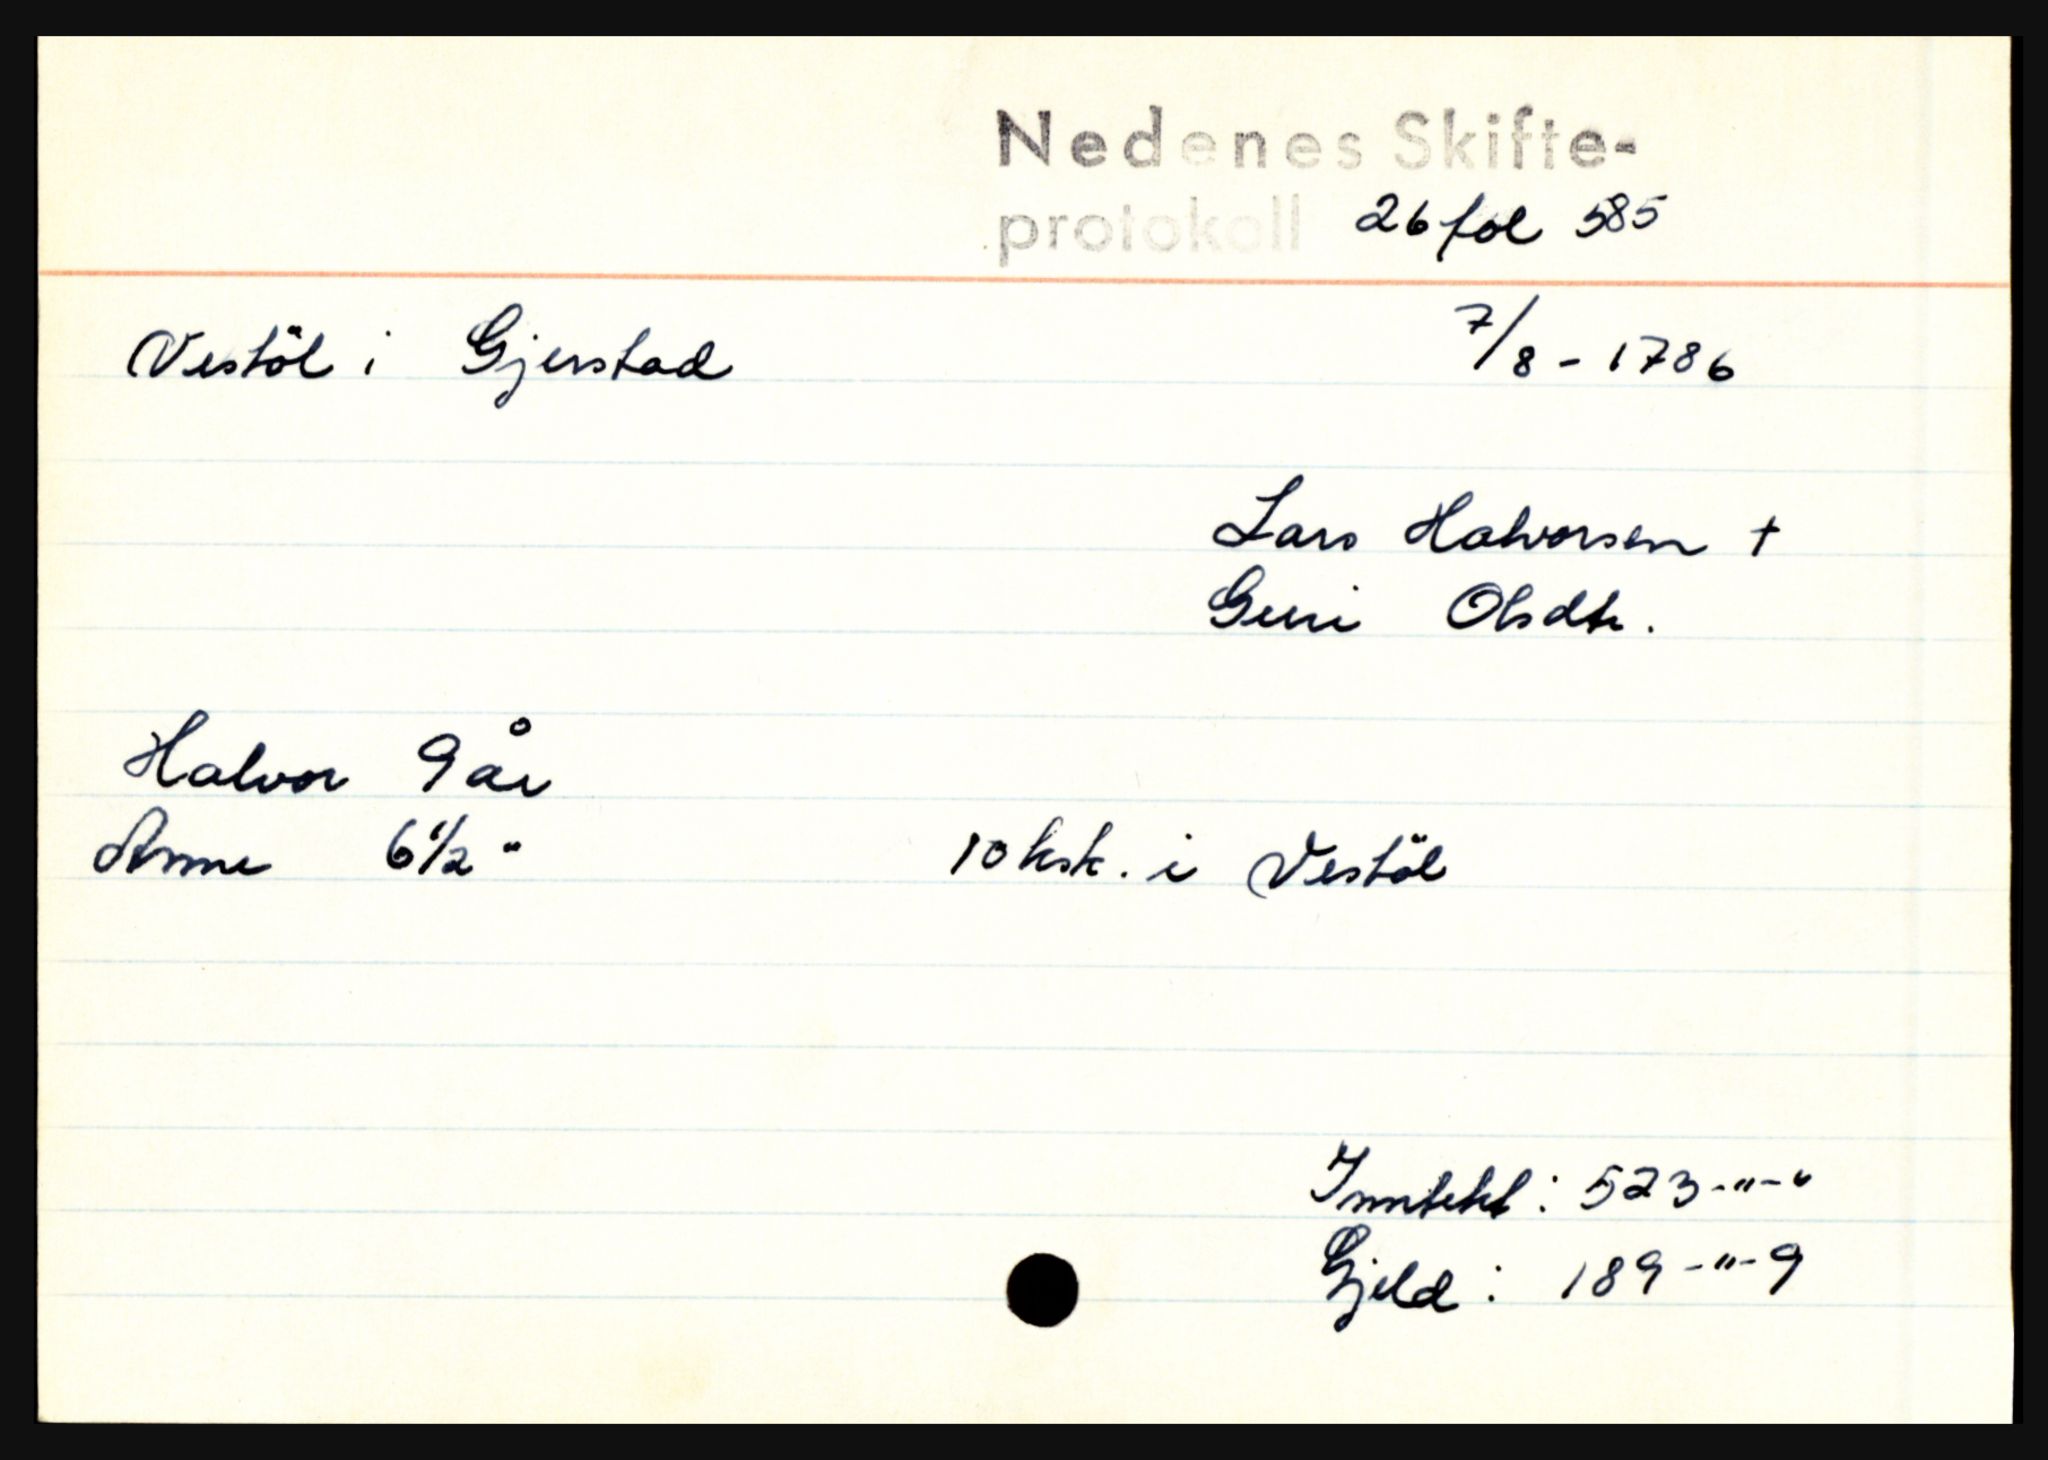 Nedenes Skifte-
protokoll 26 fol 585
Vestöl i Gjerstad 7/8 - 1786
Lars Halvorsen +
Guri Olsdtr.
Halvor 9 år
Anne 6 1/2 " 10 ksk. i Vestöl
Inntekt : 523 - " - "
Gjeld : 189 - " - 9